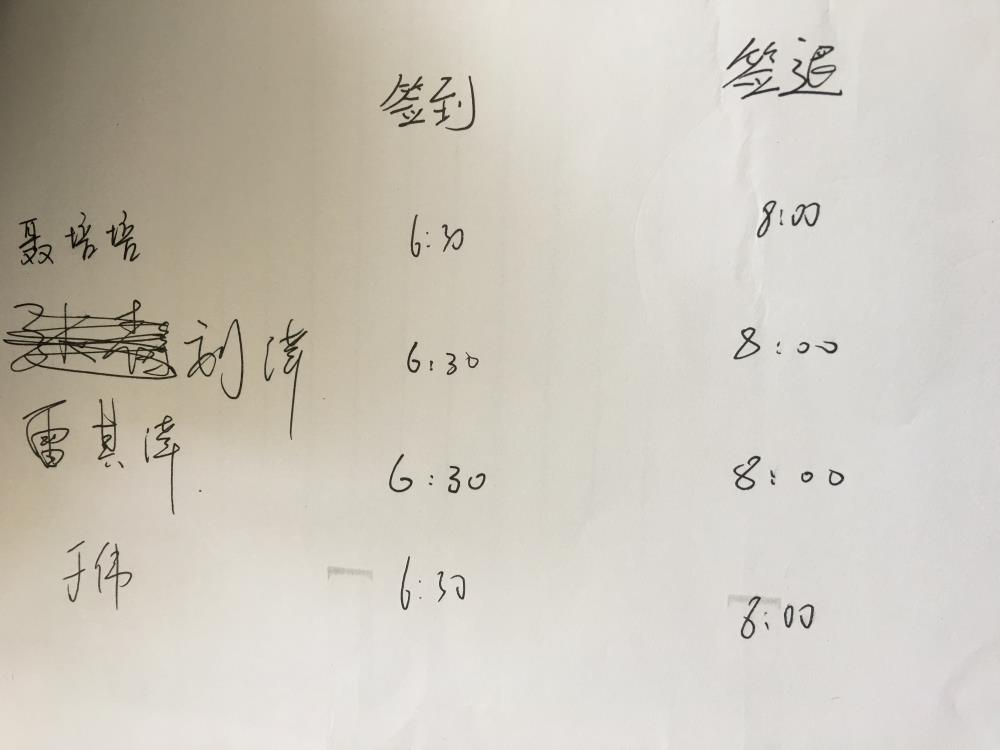 签到 签退
聂培培 6:30 8:00
刘 6:30 8:00
雷其 6:30 8:00
于伟 6:30 8:00